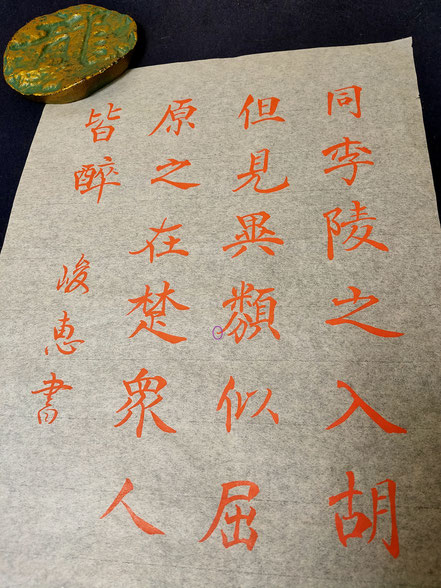 同李陵之入胡
但見異類似屈
原之在楚衆人
皆醉
峻恵書